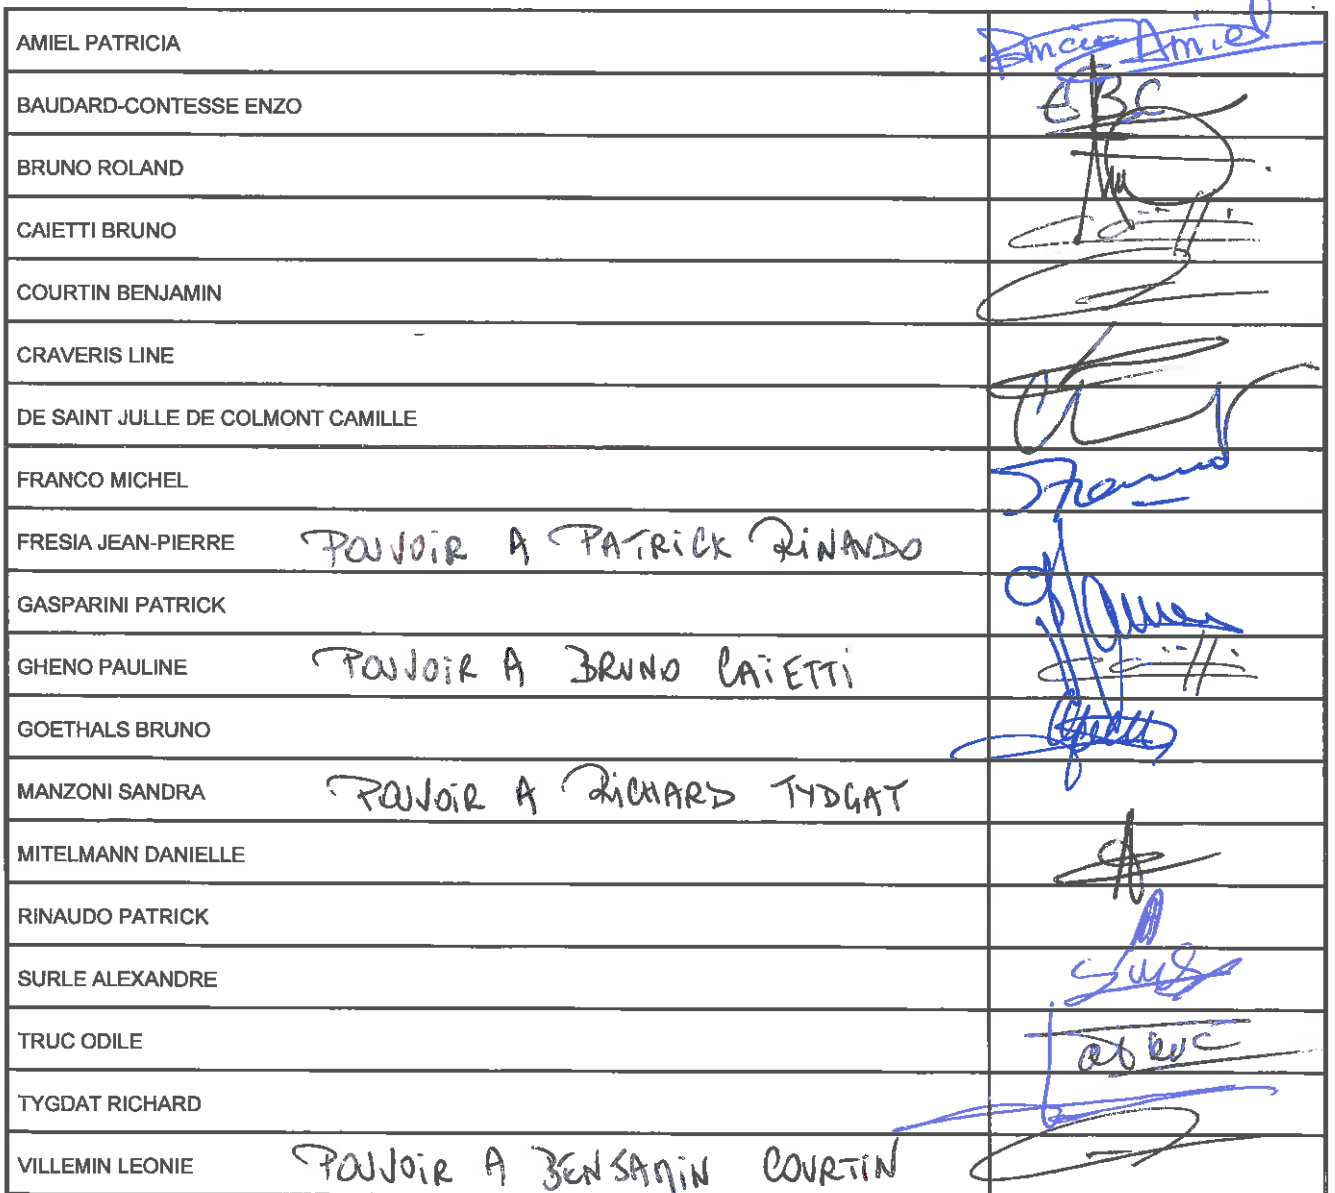 AMIEL PATRICIA Amiel
BAUDARD-CONTESSE ENZO EBC
BRUNO ROLAND
CAIETTI BRUNO
COURTIN BENJAMIN
CRAVERIS LINE
DE SAINT JULLE DE COLMONT CAMILLE
FRANCO MICHEL
FRESIA JEAN-PIERRE POUVOIR A PATRICK RINAUDO
GASPARINI PATRICK
GHENO PAULINE POUVOIR A BRUNO CAÏETTI
GOETHALS BRUNO
MANZONI SANDRA POUVOIR A RICHARD TYDGAT
MITELMANN DANIELLE
RINAUDO PATRICK
SURLE ALEXANDRE
TRUC ODILE
TYGDAT RICHARD
VILLEMIN LEONIE POUVOIR A BENJAMIN COURTIN